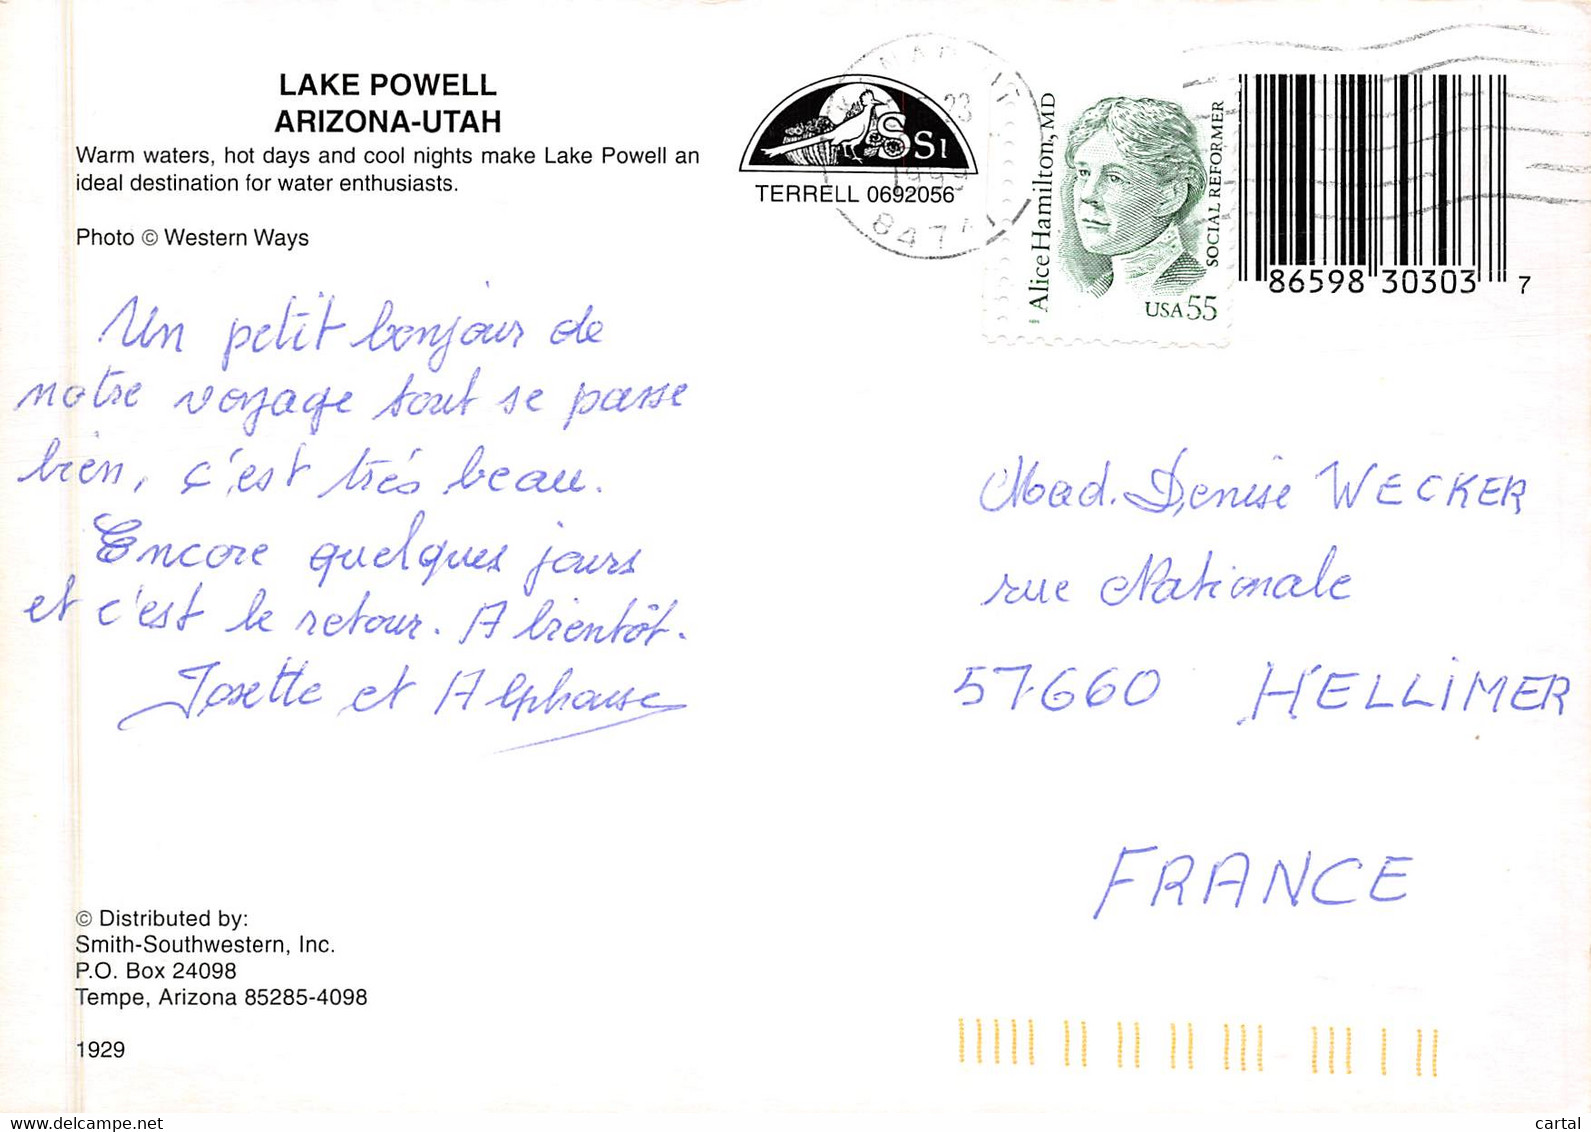 LAKE POWELL
ARIZONA-UTAH
Warm waters, hot days and cool nights make Lake Powell an
ideal destination for water enthusiasts.
Photo © Western Ways
Un petit bonjour de
notre voyage tout se passe
bien, c'est très beau.
Encore quelques jours
et c'est le retour. A bientôt.
Josette et Alphonse
© Distributed by:
Smith-Southwestern, Inc.
P.O. Box 24098
Tempe, Arizona 85285-4098
1929
SSI
TERRELL 0692056
23
1999
8474
Alice Hamilton, MD
SOCIAL REFORMER
USA 55
86598 30303 7
Mad. Denise WECKER
rue Nationale
57660 HELLIMER
FRANCE
www.delcampe.net
cartal